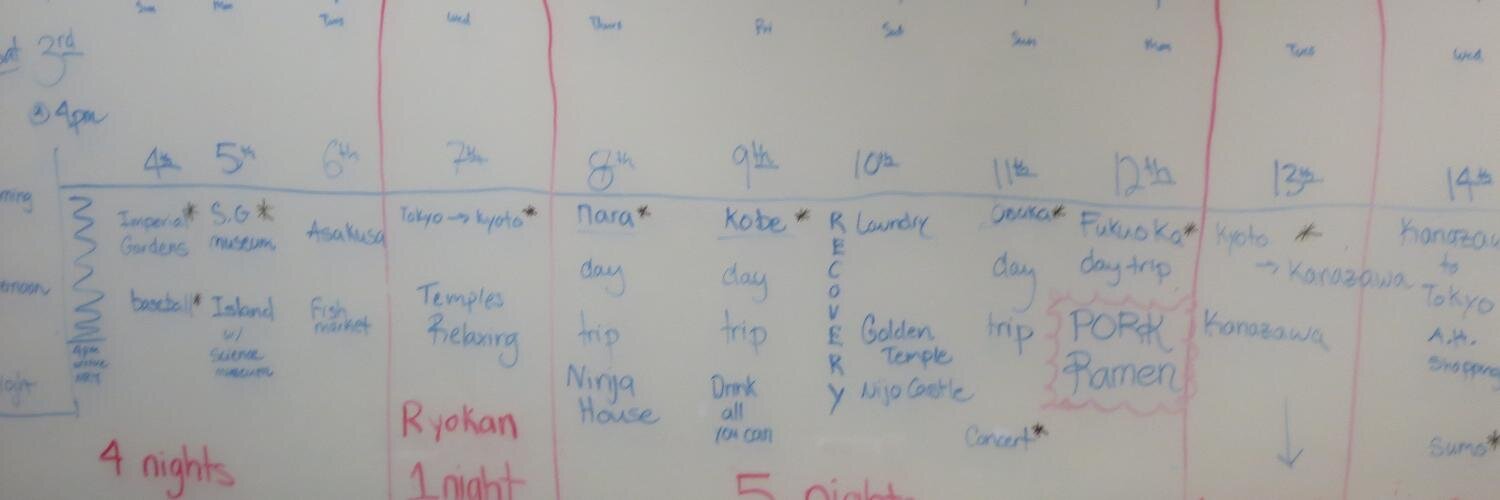 Sun Mon Tues Wed Thurs Fri Sat Sun Mon Tues Wed
3rd
@ 4pm
4th 5th 6th 7th 8th 9th 10th 11th 12th 13th 14th
Imperial*
Gardens
baseball*
4pm
arrive
NRT
S.G*
museum
Island
w/
science
museum
Asakusa
Fish
market
4 nights
Tokyo → Kyoto*
Temples
Relaxing
Ryokan
1 night
Nara*
day
trip
Ninja
House
Kobe *
day
trip
Drink
all
you can
RECOVERY
Laundry
Golden
Temple
Nijo Castle
5 nights
day
trip
Concert*
Fukuoka*
day trip
PORK
Ramen
Kyoto *
→ Kanazawa
Kanazawa
↓
to
Tokyo
A.H.
Shopping
Sumo*